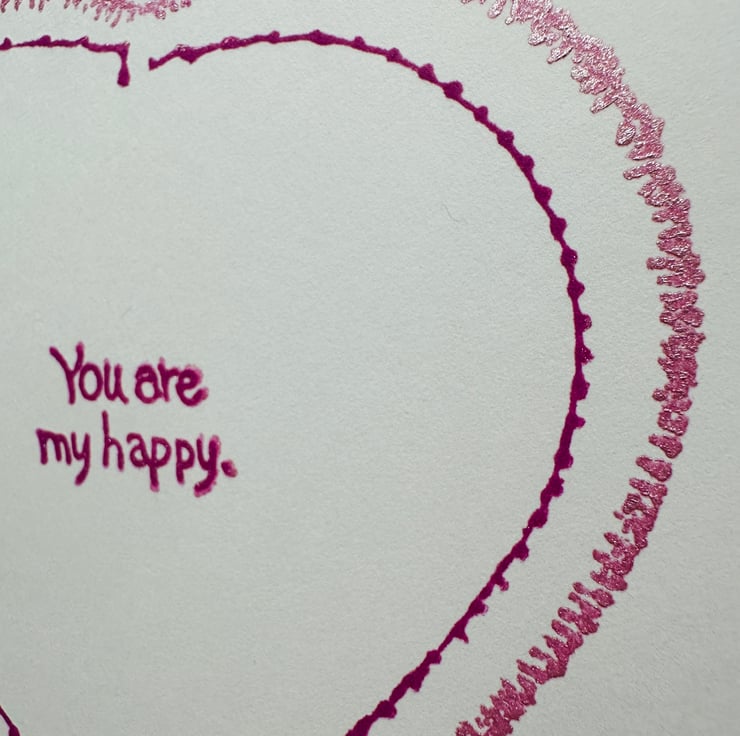 You are
my happy.